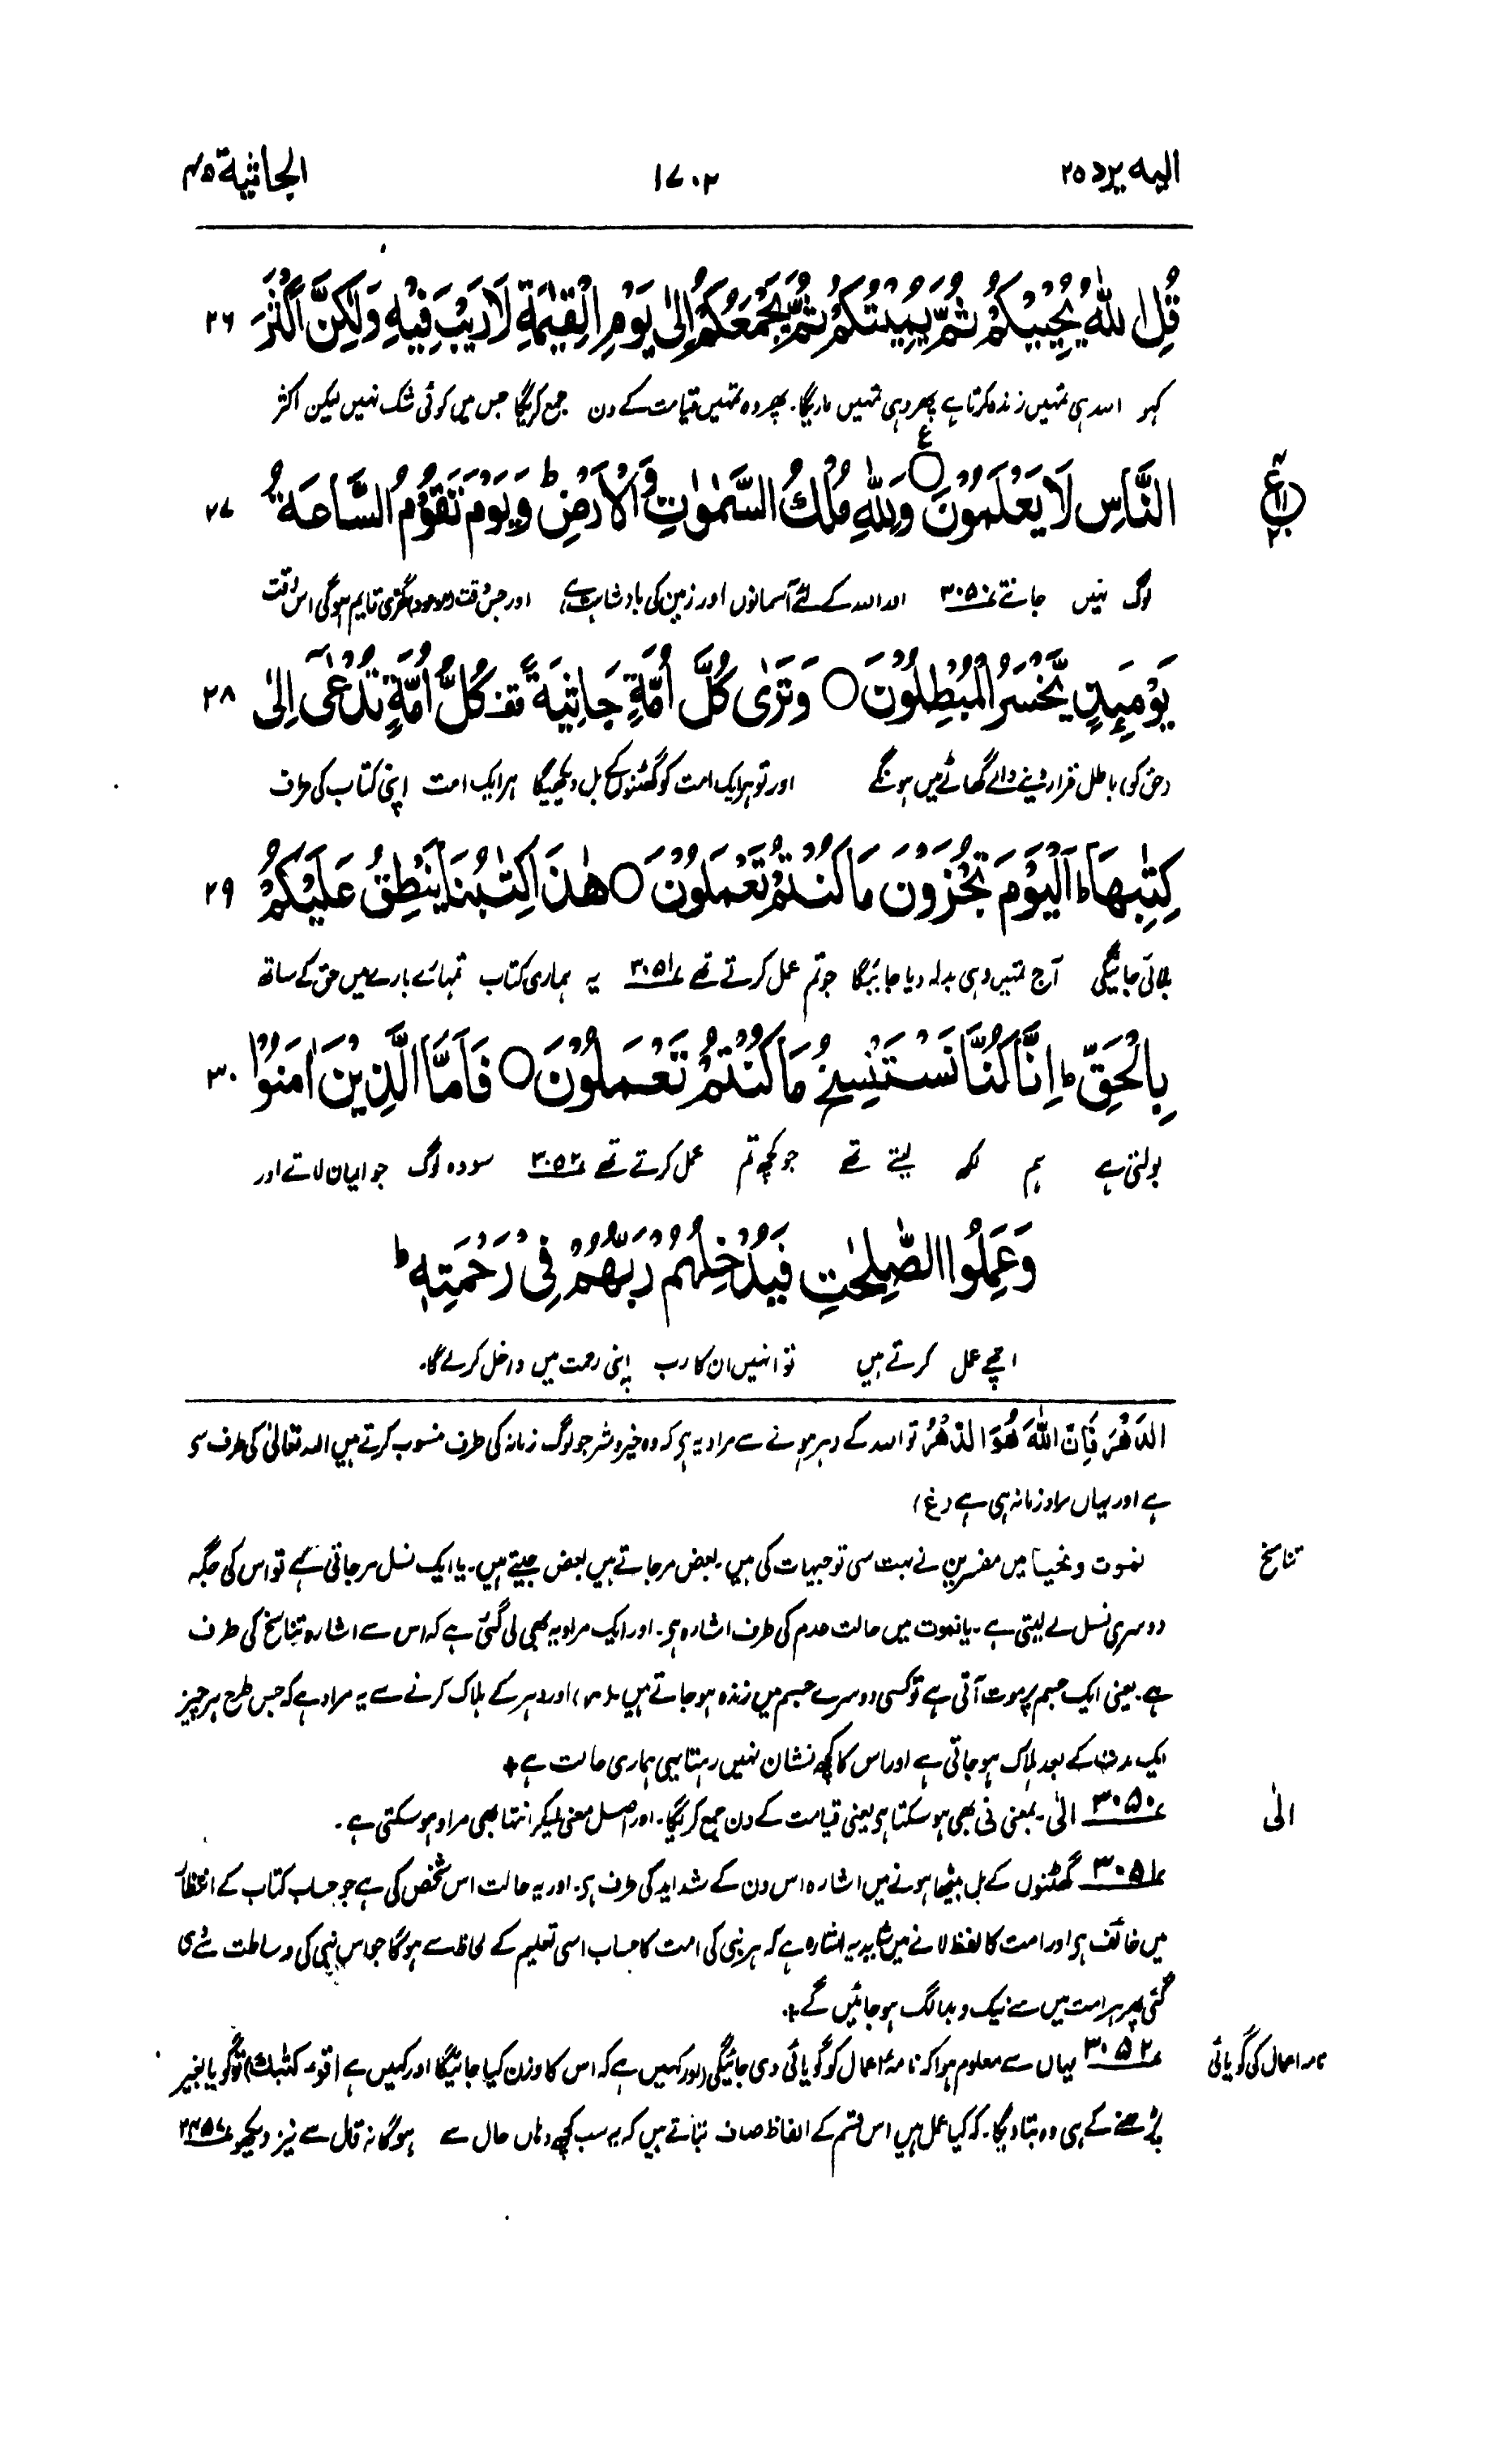 الیہ یرد ۲۵
۱۷۰۲
الجاثیۃ ۴۵
قُلِ اللّٰهُ یُحْیِیْكُمْ ثُمَّ یُمِیْتُكُمْ ثُمَّ یَجْمَعُكُمْ اِلٰی یَوْمِ الْقِیٰمَةِ لَا رَیْبَ فِیْهِ وَلٰكِنَّ اَكْثَرَ ۲۶
کہو اللہ ہی تمہیں زندہ کرتا ہے پھر وہی تمہیں ماریگا۔ پھر وہ تمہیں قیامت کے دن جمع کریگا جس میں کوئی شک نہیں لیکن اکثر
النَّاسِ لَا یَعْلَمُوْنَ ○ وَلِلّٰهِ مُلْكُ السَّمٰوٰتِ وَالْاَرْضِ ؕ وَیَوْمَ تَقُوْمُ السَّاعَةُ ۲۷
ع
لوگ نہیں جانتے ۳۰۵۰ اور اللہ کے لئے آسمانوں اور زمین کی بادشاہت ہے، اور جس وقت (موعود) گھڑی قایم ہوگی اس وقت
یَوْمَئِذٍ یَّخْسَرُ الْمُبْطِلُوْنَ ○ وَتَرٰی كُلَّ اُمَّةٍ جَاثِیَةً ۫ كُلُّ اُمَّةٍ تُدْعٰۤی اِلٰی ۲۸
(حق کو) باطل قرار دینے والے گھاٹے میں ہونگے اور تو ہر ایک امت کو گھٹنوں کے بل دیکھیگا ہر ایک امت اپنی کتاب کی طرف
كِتٰبِهَا ؕ اَلْیَوْمَ تُجْزَوْنَ مَا كُنْتُمْ تَعْمَلُوْنَ ○ هٰذَا كِتٰبُنَا یَنْطِقُ عَلَیْكُمْ ۲۹
بلائی جائیگی آج تمہیں وہی بدلہ دیا جائیگا جو تم عمل کرتے تھے ۳۰۵۱ یہ ہماری کتاب تمہارے بارے میں حق کے ساتھ
بِالْحَقِّ ؕ اِنَّا كُنَّا نَسْتَنْسِخُ مَا كُنْتُمْ تَعْمَلُوْنَ ○ فَاَمَّا الَّذِیْنَ اٰمَنُوْا ۳۰
بولتی ہے ہم لکھ لیتے تھے جو کچھ تم عمل کرتے تھے ۳۰۵۲ سو وہ لوگ جو ایمان لاتے اور
وَعَمِلُوا الصّٰلِحٰتِ فَیُدْخِلُهُمْ رَبُّهُمْ فِیْ رَحْمَتِهٖ ؕ
اچھے عمل کرتے ہیں تو انہیں ان کا رب اپنی رحمت میں داخل کرلے گا۔
الدَهْرَ فَاِنَّ اللّٰهَ هُوَ الدَّهْرُ تو اللہ کے دہر ہونے سے مراد یہ ہے کہ وہ خیر و شر جو لوگ زمانہ کی طرف منسوب کرتے ہیں اللہ تعالیٰ کی طرف سے
ہے اور یہاں مراد زمانہ ہی ہے (غ)
تناسخ
نموت و نحیا میں مفسرین نے بہت سی توجیہات کی ہیں۔ بعض مرجاتے ہیں بعض جیتے ہیں۔ یا ایک نسل مرجاتی ہے تو اس کی جگہ
دوسری نسل لے لیتی ہے۔ یا نموت میں حالت عدم کی طرف اشارہ ہے۔ اور ایک مراد یہ بھی لی گئی ہے کہ اس سے اشارہ تناسخ کی طرف
ہے۔ یعنی ایک جسم پر موت آتی ہے تو کسی دوسرے جسم میں زندہ ہوجاتے ہیں (ر) اور دہر کے ہلاک کرنے سے یہ مراد ہے کہ جس طرح ہر چیز
ایک مدت کے بعد ہلاک ہوجاتی ہے اور اس کا کچھ نشان نہیں رہتا یہی ہماری حالت ہے +
الیٰ
۳۰۵۰ الیٰ۔ بمعنی فی بھی ہوسکتا ہے یعنی قیامت کے دن جمع کریگا۔ اور اصل معنی لیکر انتہا بھی مراد ہوسکتی ہے۔
۳۰۵۱ گھٹنوں کے بل بیٹھا ہونے میں اشارہ اس دن کے شداید کی طرف ہے۔ اور یہ حالت اس شخص کی ہے جو حساب کتاب کے انتظار
میں خائف ہو اور امت کا لفظ لانے میں شاید یہ اشارہ ہے کہ ہر نبی کی امت کا حساب اسی تعلیم کے لحاظ سے ہوگا جو اس نبی کی وساطت سے دی
گئی پھر ہر امت میں سے نیک و بد الگ ہوجائیں گے +
نامہ اعمال کی گویائی
۳۰۵۲ یہاں سے معلوم ہوا کہ نامۂ اعمال کو گویائی دی جائیگی اور کہیں ہے کہ اس کا وزن کیا جائیگا اور کہیں ہے اقرء کتٰبک تو گویا بغیر
پڑھنے کے ہی وہ بتا دیگا۔ کہ کیا عمل ہیں اس قسم کے الفاظ صاف بتاتے ہیں کہ یہ سب کچھ وہاں حال سے ہوگا نہ قال سے نیز دیکھو